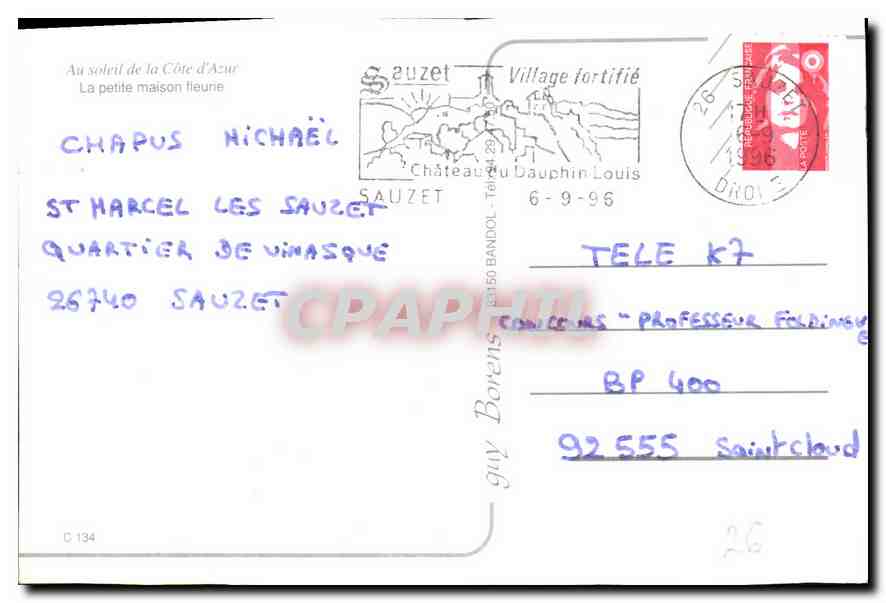 Au soleil de la Côte d'Azur
La petite maison fleurie
CHAPUS MICHAËL
ST MARCEL LES SAUZET
QUARTIER DE VINASQUE
26740 SAUZET
Sauzet Village fortifié
Château du Dauphin Louis
SAUZET 6-9-96
26 SAUZET
1996
DROME
RÉPUBLIQUE FRANÇAISE
LA POSTE
guy Borens 83150 BANDOL - Tél. 94 29
TELE K7
CONCOURS - PROFESSEUR FOLDINGUE
BP 400
92 555 Saint Cloud
CPAPHIL
C 134
26